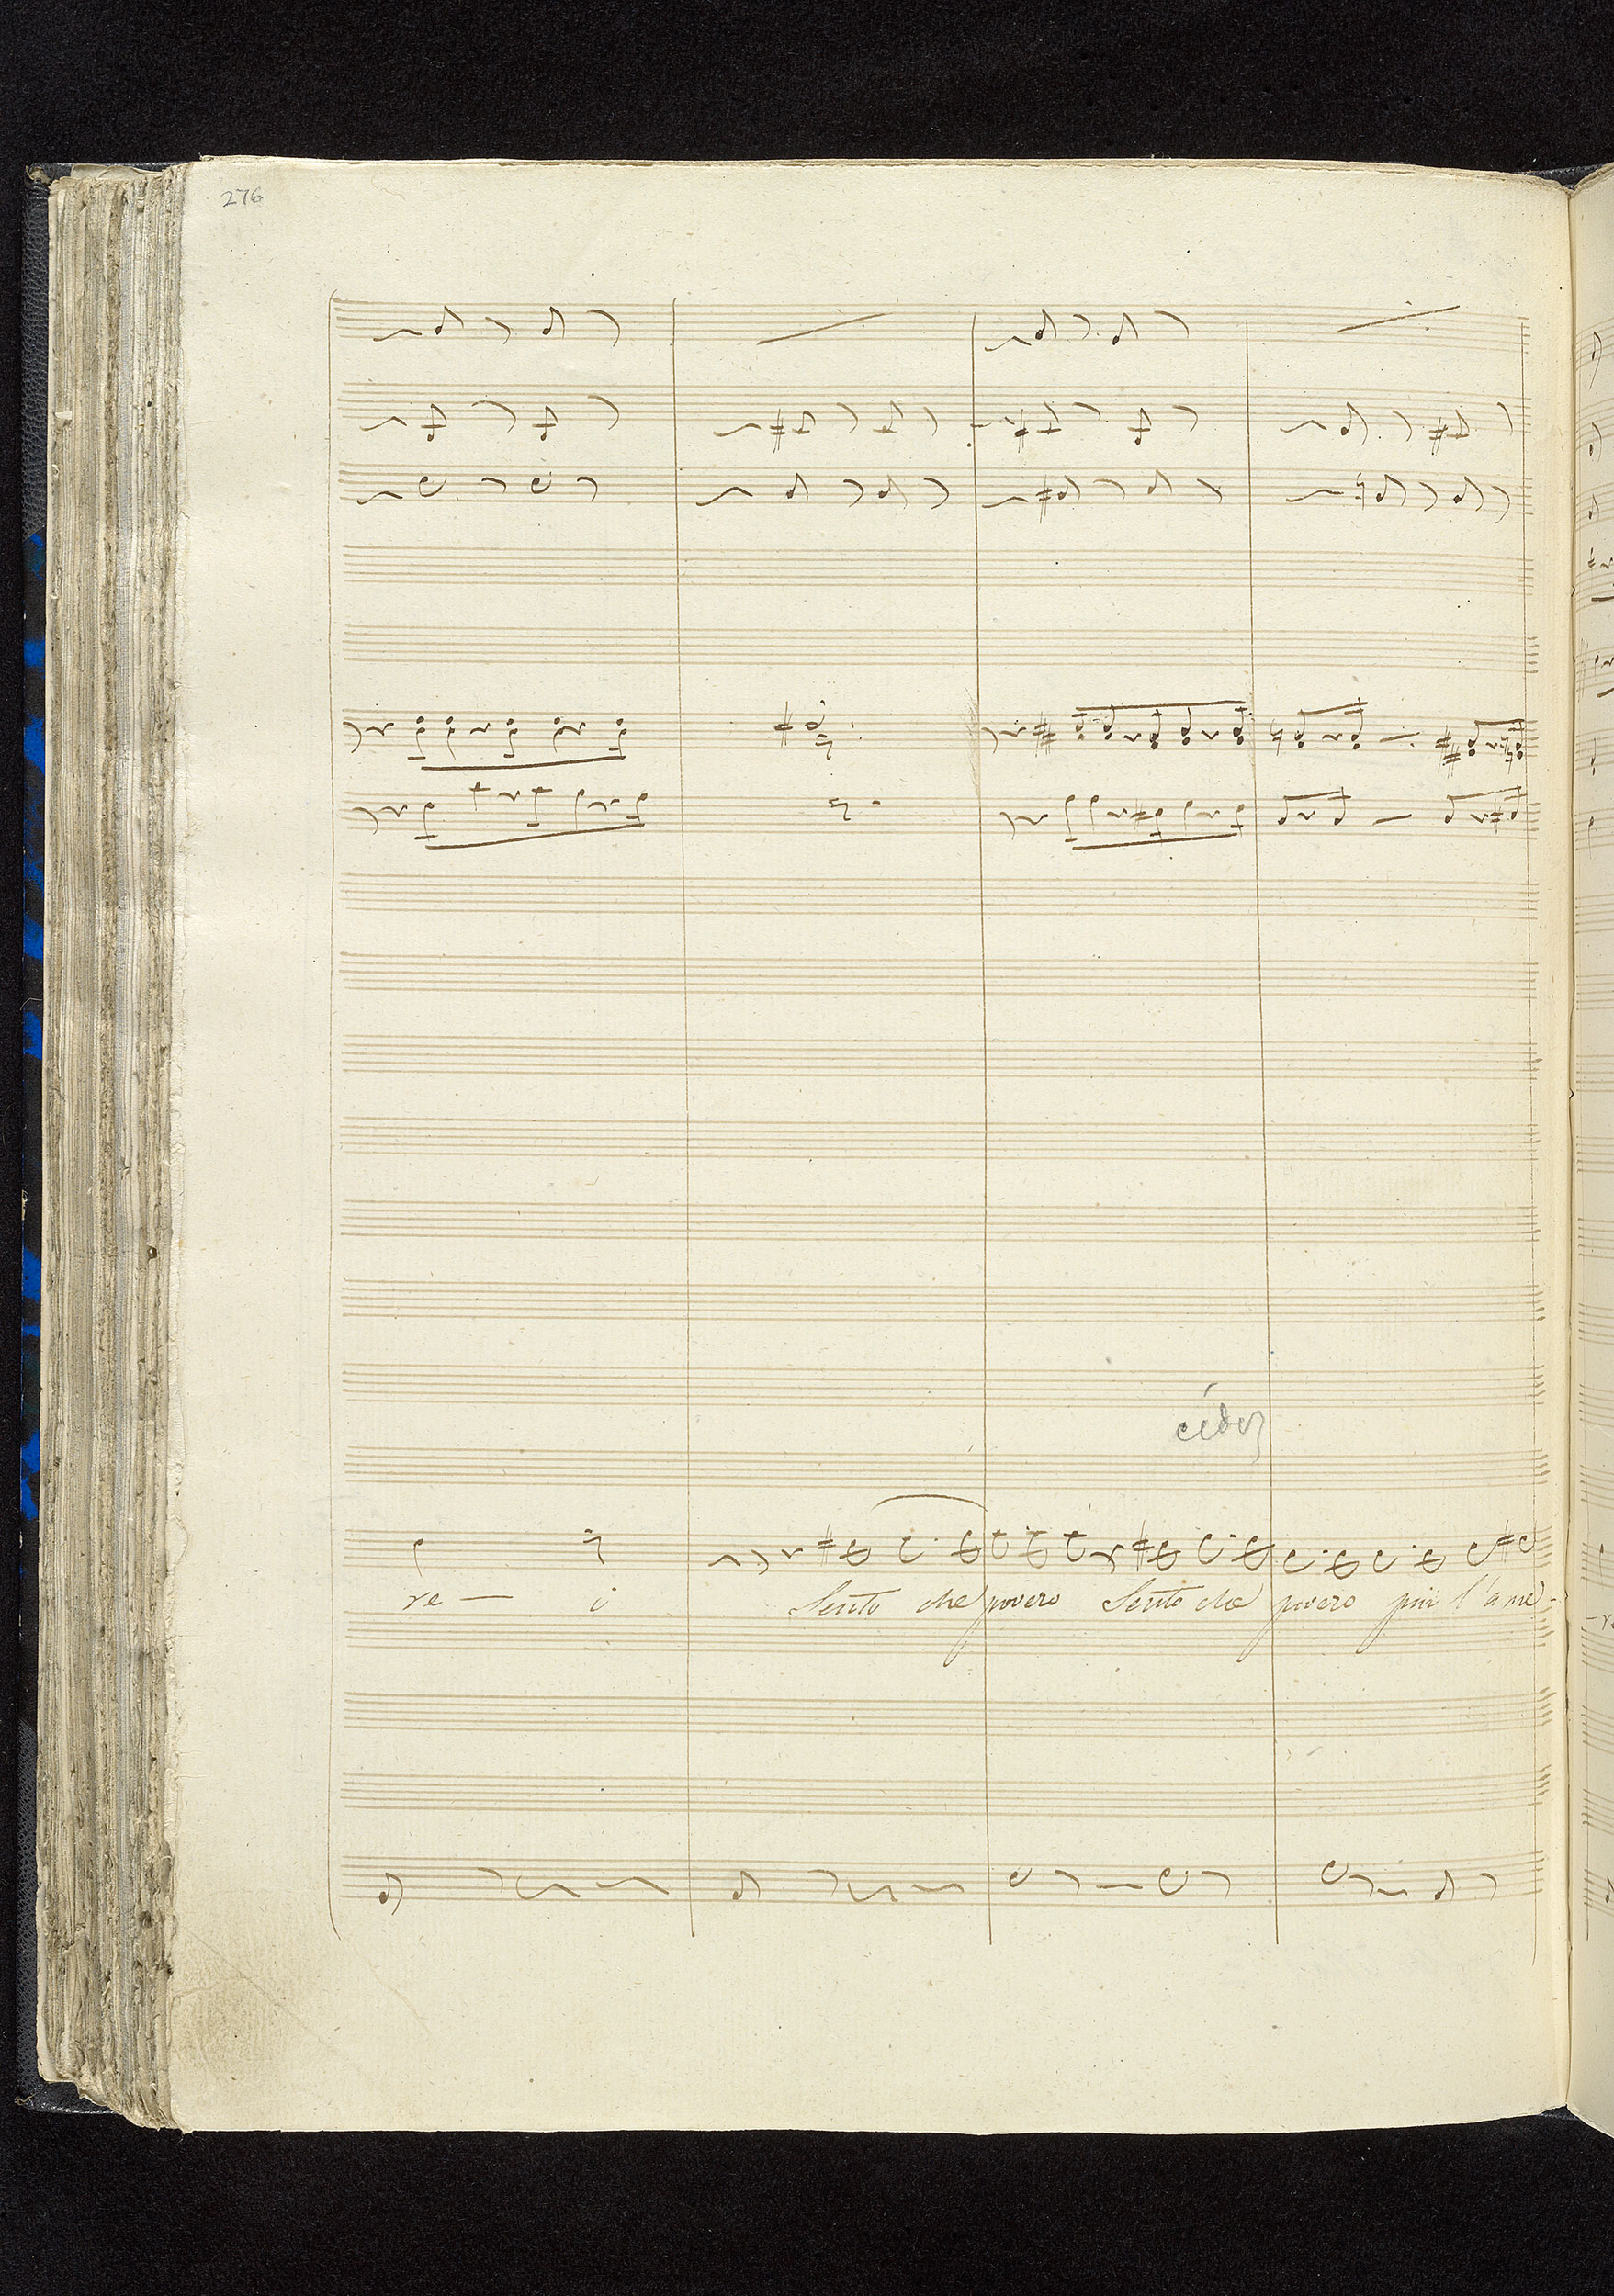 276
cédez
re — i Sento che povero Sento che povero più l'ame-